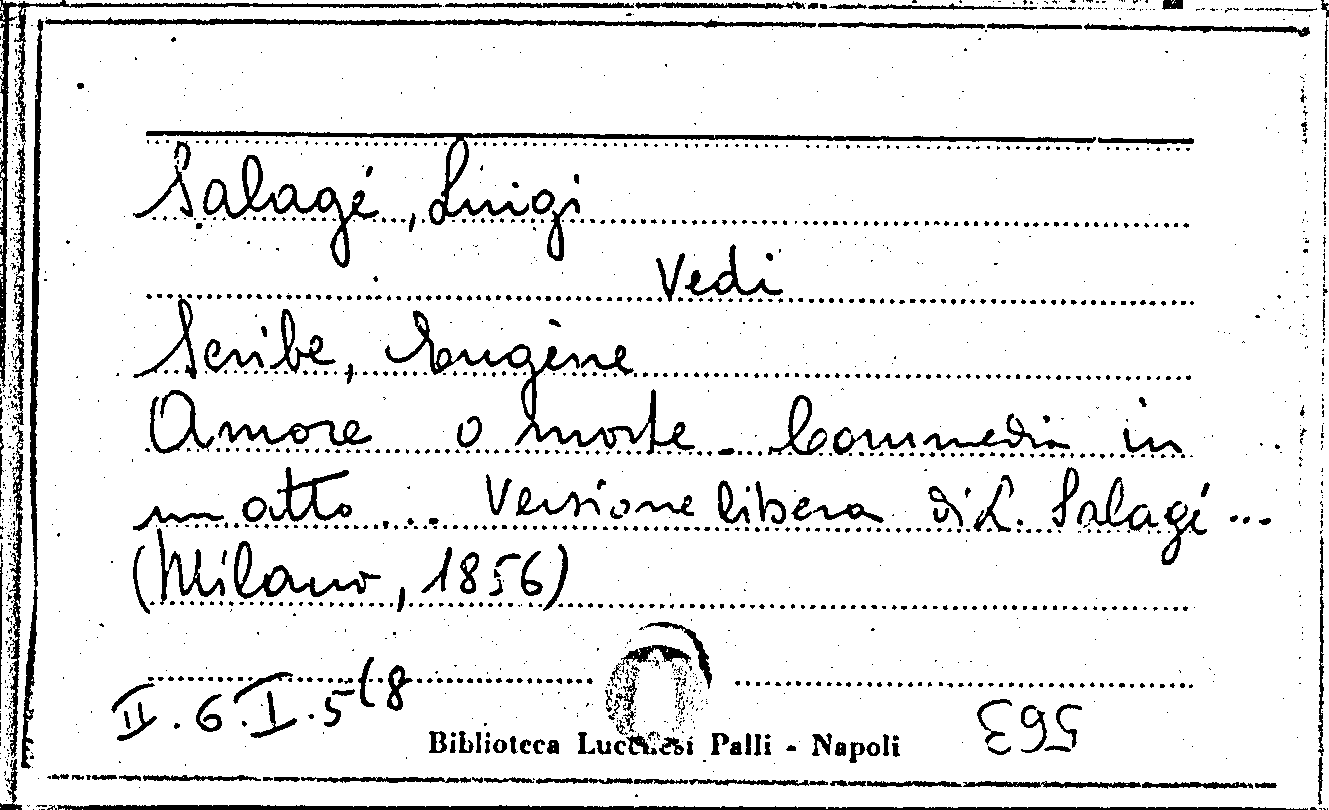 Salagé, Luigi
Vedi
Scribe, Eugène
Amore o morte. Commedia in
un atto... Versione libera di L. Salagé...
(Milano, 1856)
II.6.I.5(8
Biblioteca Lucchesi Palli - Napoli
563